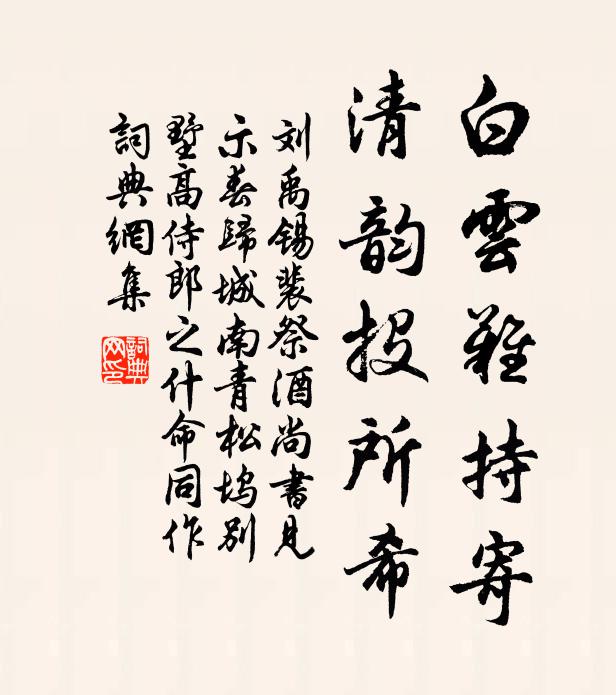 白雲難持寄
清韵投所希
刘禹锡裴祭酒尚書見
示春歸城南青松坞别
墅高侍郎之什命同作
詞典網集
詞典网印